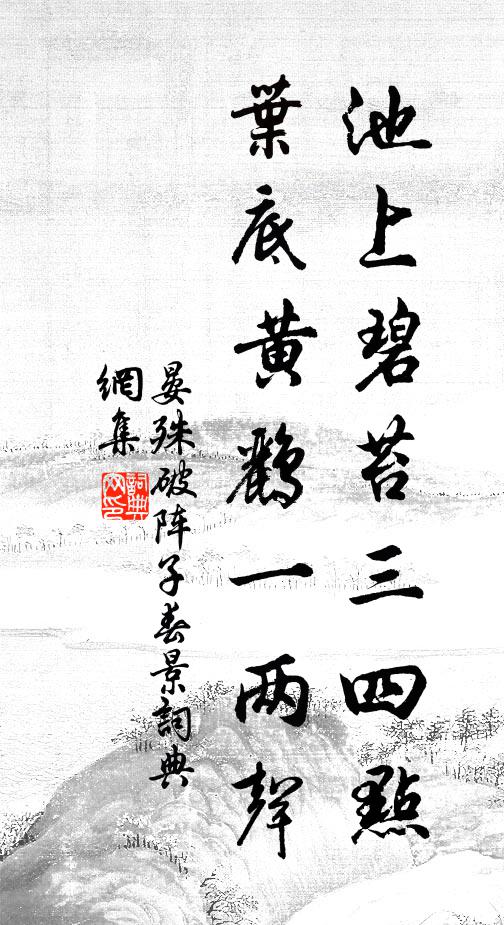 池上碧苔三四點
葉底黃鸝一两聲
晏殊破阵子春景詞典
網集
詞典
网印